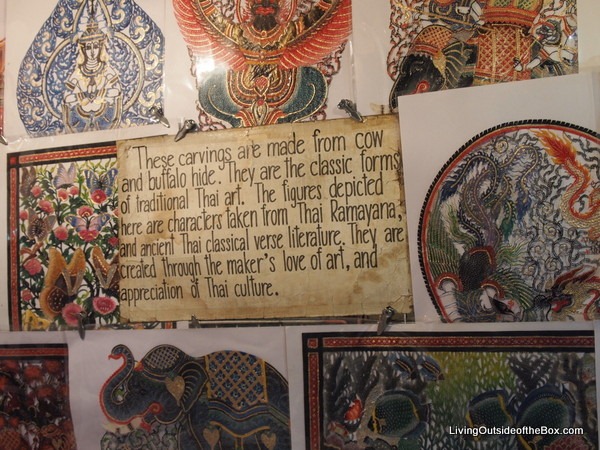 These carvings are made from cow
and buffalo hide. They are the classic forms
of traditional Thai art. The figures depicted
here are characters taken from Thai Ramayana,
and ancient Thai classical verse literature. They are
created through the maker's love of art, and
appreciation of Thai culture.
LivingOutsideoftheBox.com